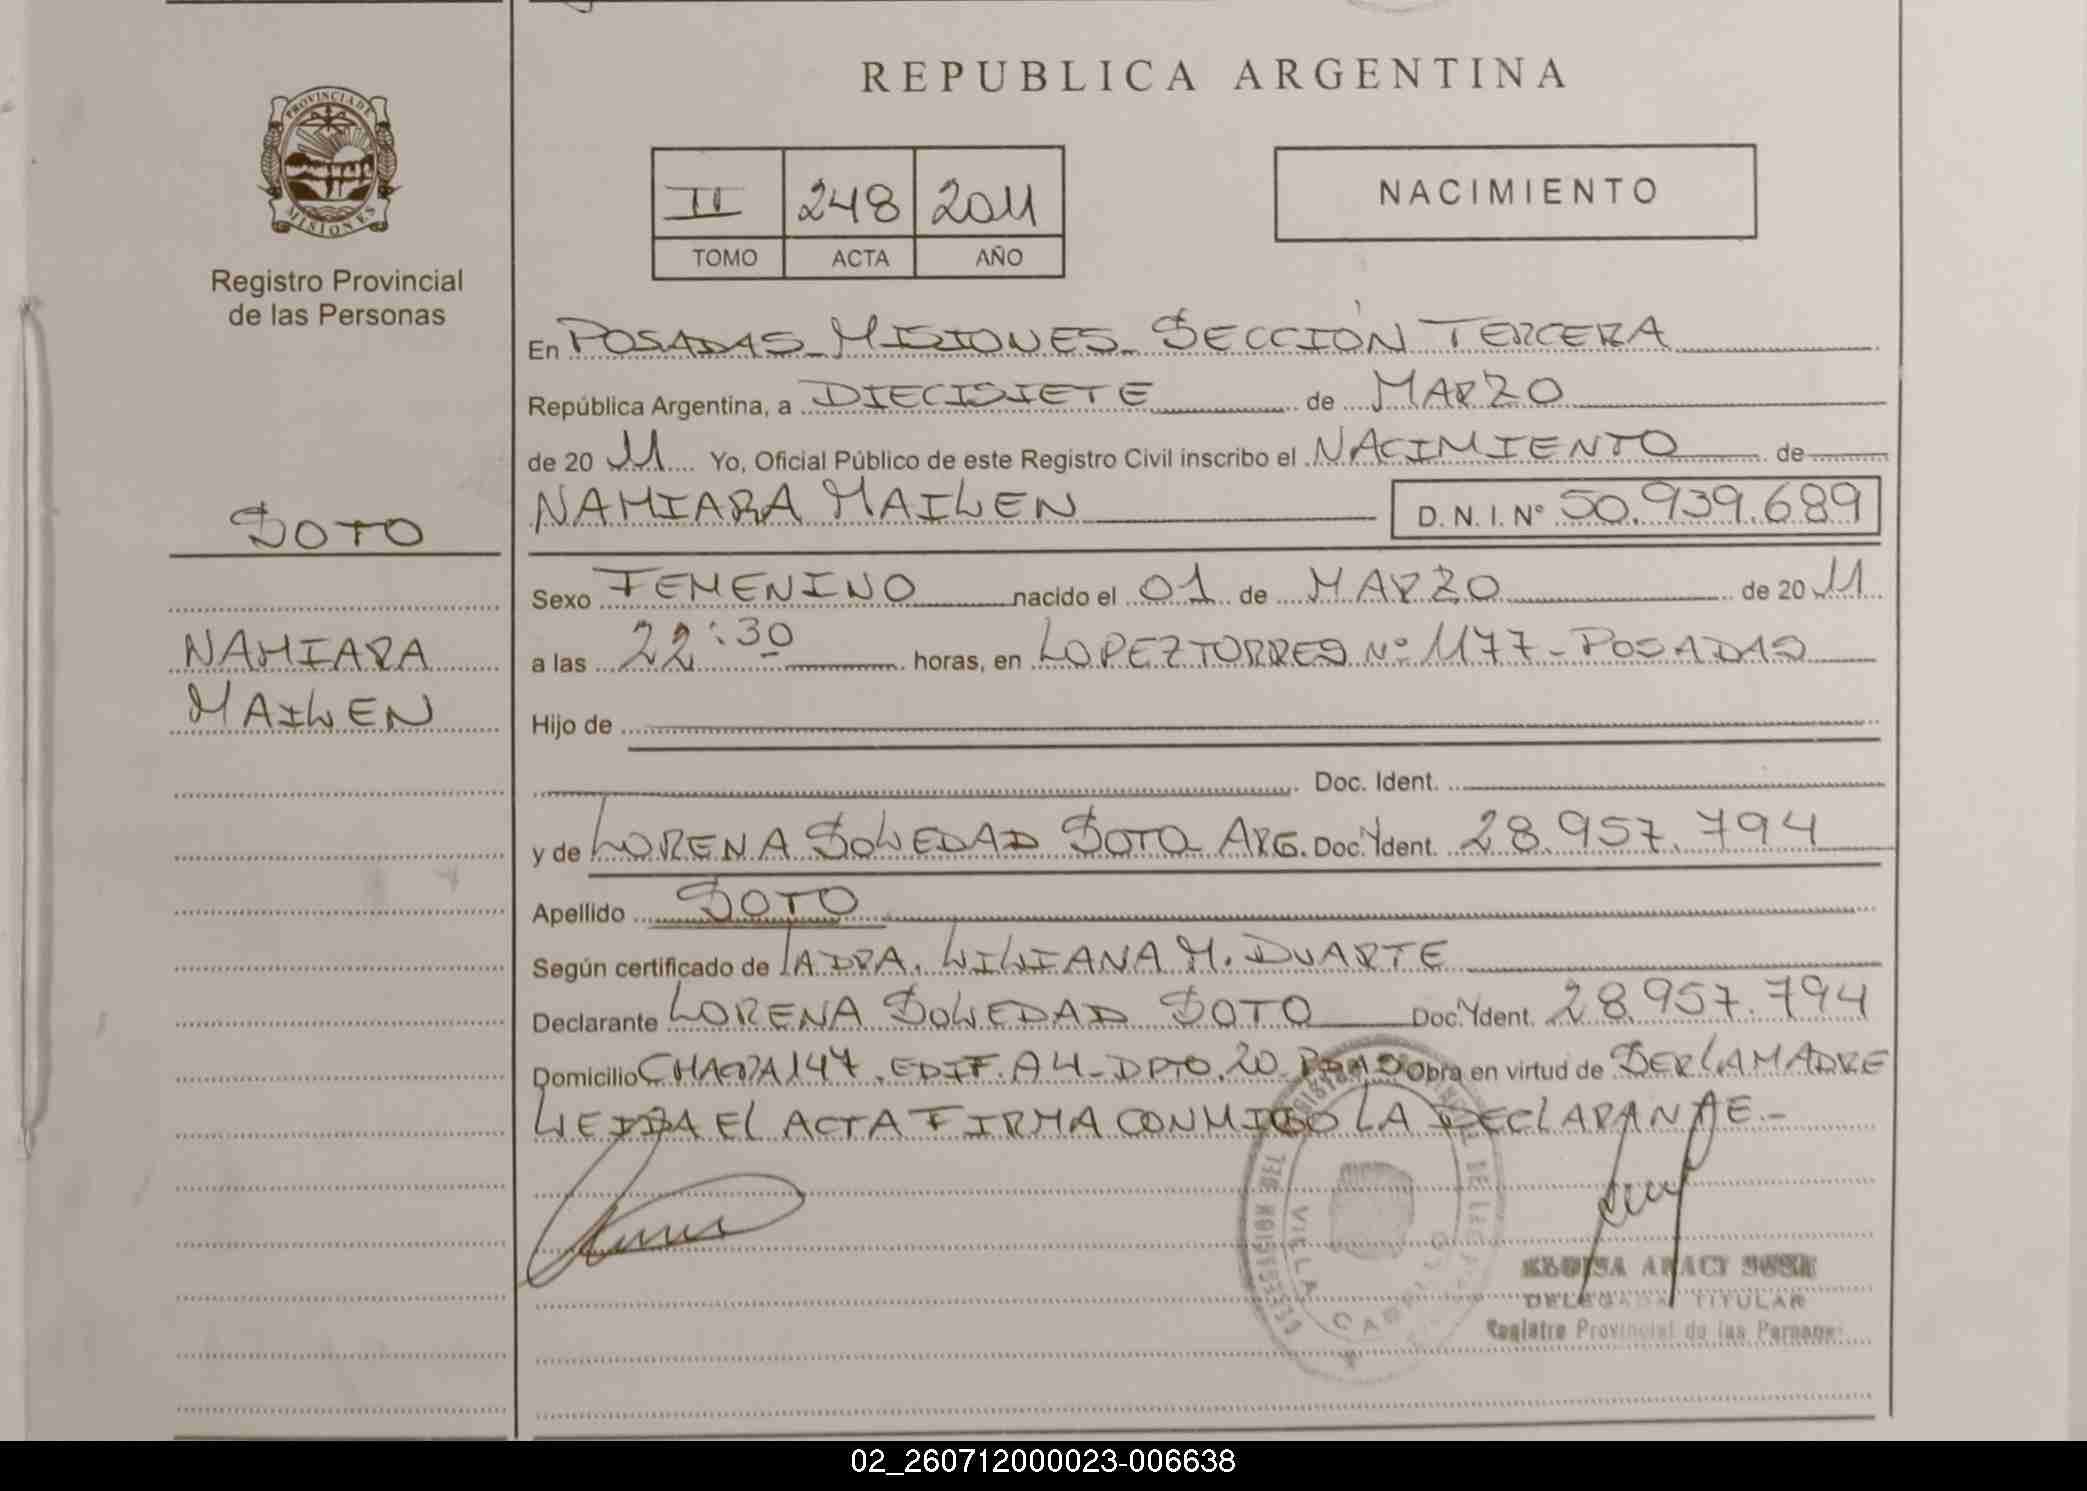 REPUBLICA ARGENTINA
PROVINCIA DE
MISIONES
Registro Provincial
de las Personas
II 248 2011
TOMO ACTA AÑO
NACIMIENTO
SOTO
NAHIARA
MAILEN
En POSADAS-MISIONES-SECCIÓN TERCERA
República Argentina, a DIECISIETE de MARZO
de 20 11 Yo, Oficial Público de este Registro Civil inscribo el NACIMIENTO de
NAHIARA MAILEN D.N.I.Nº 50.939.689
Sexo FEMENINO nacido el 01 de MARZO de 20 11
a las 22:30 horas, en LOPEZ TORRES Nº 1177-POSADAS
Hijo de
Doc. Ident.
y de LORENA SOLEDAD SOTO ARG. Doc. Ident. 28.957.794
Apellido SOTO
Según certificado de LA DRA. LILIANA M. DUARTE
Declarante LORENA SOLEDAD SOTO Doc. Ident. 28.957.794
Domicilio CHACRA 147. EDIF. A4-DPTO. 20 PDAS Obra en virtud de SER LA MADRE
LEIDA EL ACTA FIRMA CONMIGO LA DECLARANTE.-
VILLA CABELLO
ARACI
DELEGADA TITULAR
Registro Provincial de las Personas
02_260712000023-006638